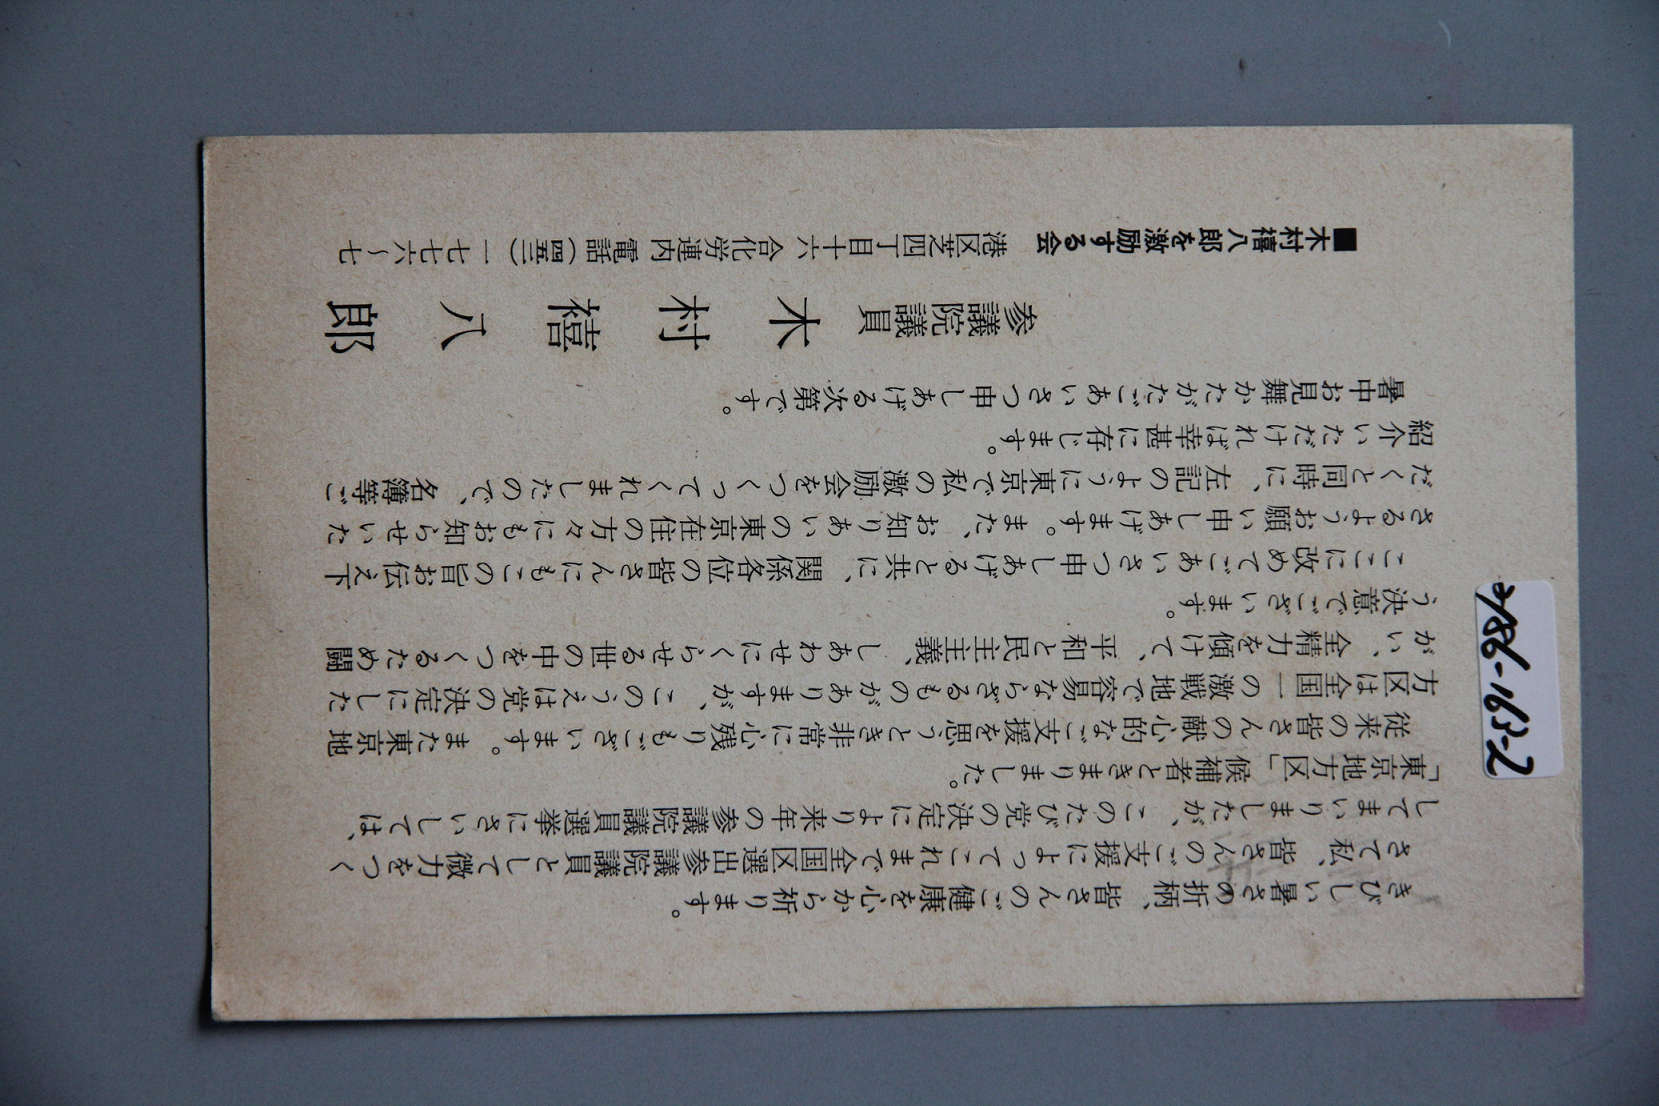 きびしい暑さの折柄、皆さんのご健康を心から祈ります。
さて私、皆さんのご支援によってこれまで全国区選出参議院議員として微力をつく
してまいりましたが、このたび党の決定により来年の参議院議員選挙にさいしては、
「東京地方区」候補者ときまりました。
従来の皆さんの献心的なご支援を思うとき非常に心残りもございます。また東京地
方区は全国一の激戦地で容易ならざるものがありますが、このうえは党の決定にした
がい、全精力を傾けて、平和と民主主義、しあわせにくらせる世の中をつくるため闘
う決意でございます。
ここに改めてごあいさつ申しあげると共に、関係各位の皆さんにもこの旨お伝え下
さるようお願い申しあげます。また、お知りあいの東京在住の方々にもお知らせいた
だくと同時に、左記のように東京で私の激励会をつくってくれましたので、名簿等ご
紹介いただければ幸甚に存じます。
暑中お見舞かたがたごあいさつ申しあげる次第です。
参議院議員 木村禧八郎
■木村禧八郎を激励する会 港区芝四丁目十六 合化労連内 電話(四五二)一七七六~七
4/86-1651-2